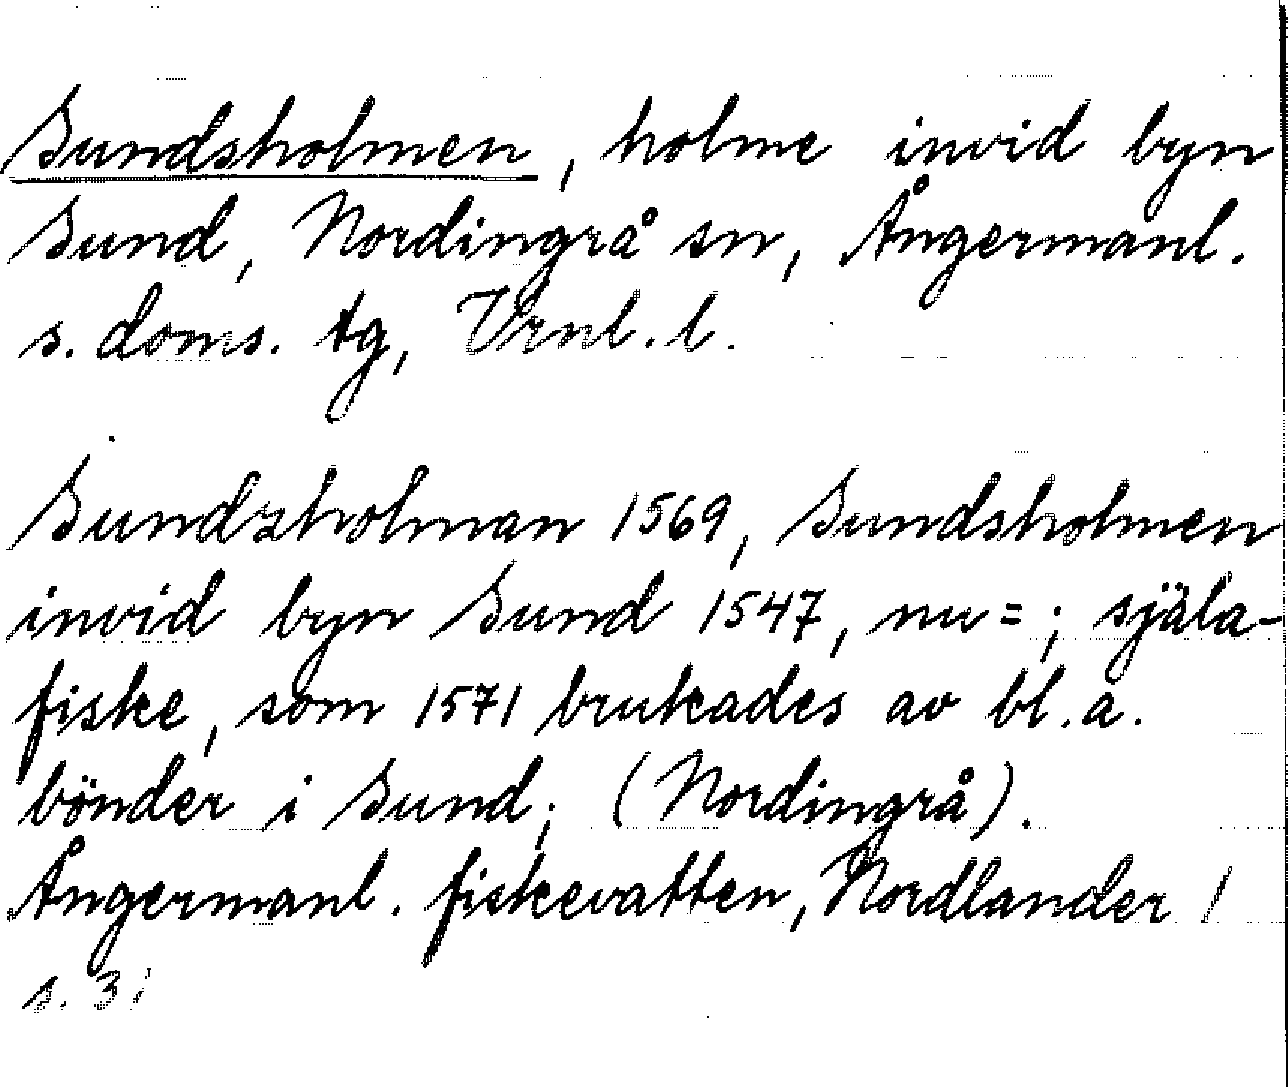 Sundsholmen, holme invid byn
Sund, Nordingrå sn, Ångermanl.
s. doms. tg, Vrnl. l.
Sundzholman 1569, Sundsholmen
invid byn Sund 1547, nu = ; själa-
fiske, som 1571 brukades av bl.a.
bönder i Sund; (Nordingrå).
Ångermanl. fiskevatten, Nordlander
s. 3